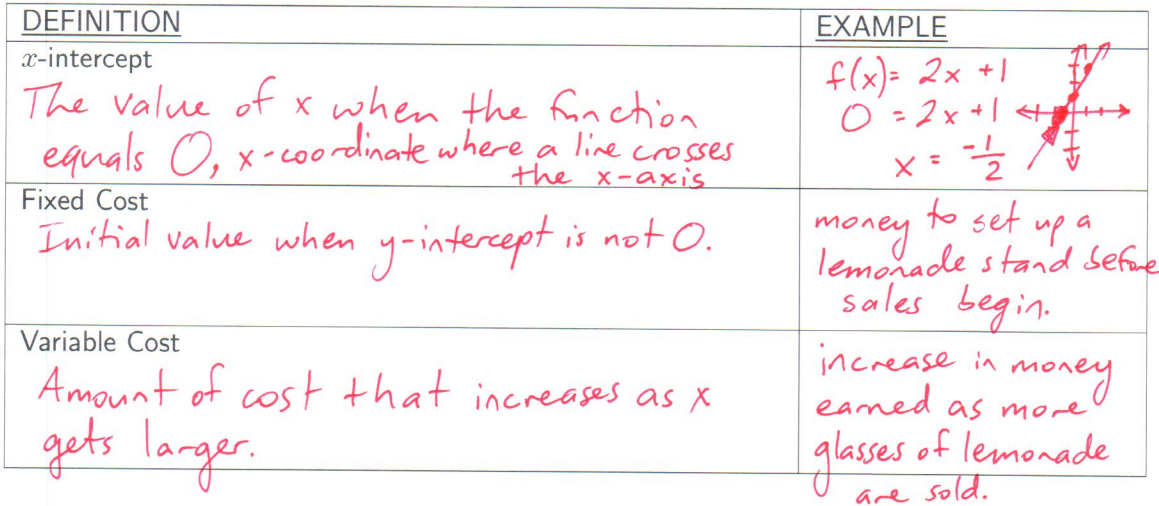 DEFINITION
EXAMPLE
x-intercept
The value of x when the function
equals 0, x-coordinate where a line crosses
the x-axis
f(x)= 2x +1
0 = 2x +1
x = -1/2
Fixed Cost
Initial value when y-intercept is not 0.
money to set up a
lemonade stand before
sales begin.
Variable Cost
Amount of cost that increases as x
gets larger.
increase in money
earned as more
glasses of lemonade
are sold.